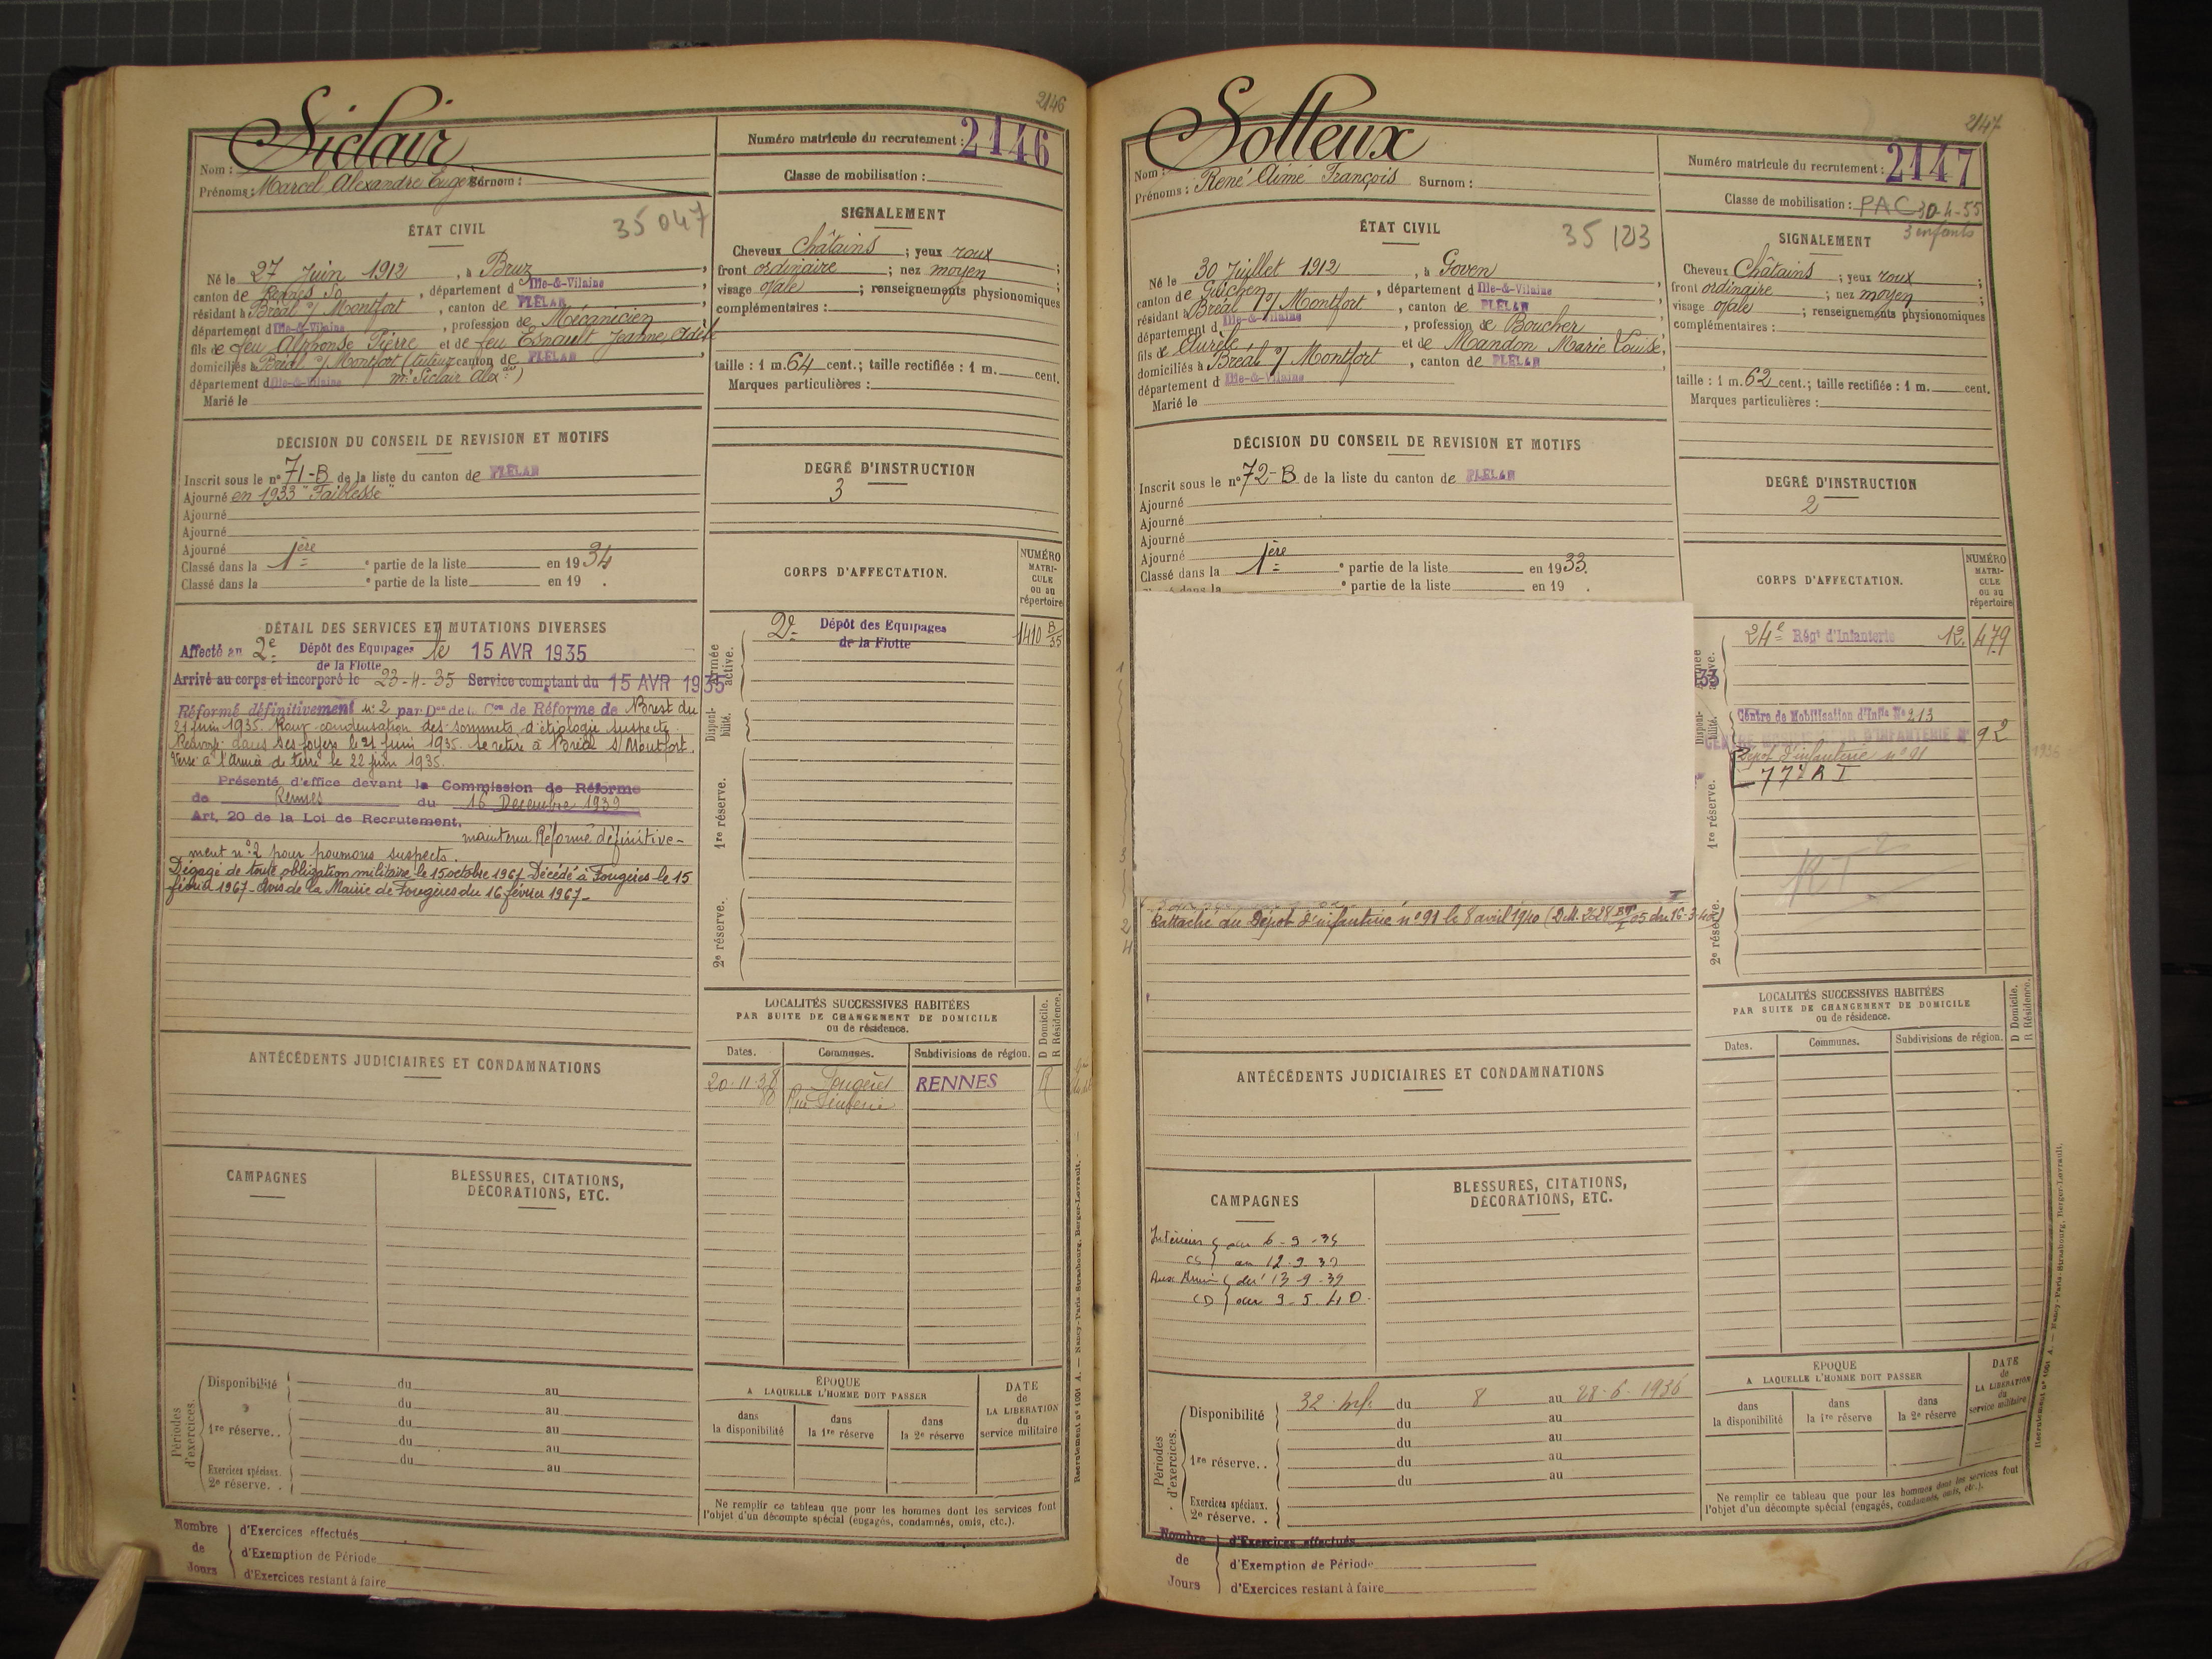 2146
Siclair
Nom :
Prénoms : Marcel Alexandre Eugène Surnom :
Numéro matricule du recrutement : 2146
Classe de mobilisation :
ÉTAT CIVIL
35 047
Né le 27 Juin 1912, à Bruz,
canton de Rennes So, département d Ille-&-Vilaine
résidant à Bréal s/ Montfort, canton de PLÉLAN
département d Ille-&-Vilaine, profession de Mécanicien
fils de feu Alphonse Pierre et de feu Esnault Jeanne Adèle
domiciliés à Bréal s/ Montfort (tuteur canton de PLÉLAN,
département d Ille-&-Vilaine mr Siclair Alex.dre)
Marié le
SIGNALEMENT
Cheveux Châtains ; yeux roux ;
front ordinaire ; nez moyen ;
visage ovale ; renseignements physionomiques
complémentaires :
taille : 1 m. 64 cent. ; taille rectifiée : 1 m. cent.
Marques particulières :
DÉCISION DU CONSEIL DE REVISION ET MOTIFS
Inscrit sous le n° 71-B de la liste du canton de PLÉLAN
Ajourné en 1933 "Faiblesse"
Ajourné
Ajourné
Ajourné
Classé dans la 1ère e partie de la liste en 1934
Classé dans la e partie de la liste en 19 .
DEGRÉ D'INSTRUCTION
3
CORPS D'AFFECTATION.
NUMÉRO
MATRI-
CULE
ou au
répertoire
Armée active.
2e Dépôt des Equipages
de la Flotte
1410 B/35
Disponi-
bilité.
1re réserve.
2e réserve.
DÉTAIL DES SERVICES ET MUTATIONS DIVERSES
Affecté au 2e Dépôt des Equipages le 15 AVR 1935
de la Flotte
Arrivé au corps et incorporé le 23-4-35 Service comptant du 15 AVR 1935
Réformé définitivement n° 2 par Don de la Con de Réforme de Brest du
21 Juin 1935. Pour condensation des sommets d'étiologie suspecte.
Renvoyé dans ses foyers le 21 Juin 1935. se retire à Bréal s/ Montfort.
Versé à l'Armée de terre le 22 juin 1935.
Présenté d'office devant la Commission de Réforme
de Rennes du 16 Décembre 1939
Art. 20 de la Loi de Recrutement.
maintenu Réformé définitive-
ment n° 2 pour poumons suspects.
Dégagé de toute obligation militaire le 15 octobre 1961 Décédé à Fougères le 15
février 1967 - Avis de la Mairie de Fougères du 16 février 1967 -
ANTÉCÉDENTS JUDICIAIRES ET CONDAMNATIONS
LOCALITÉS SUCCESSIVES HABITÉES
PAR SUITE DE CHANGEMENT DE DOMICILE
ou de résidence.
D Domicile.
R Résidence.
Dates.
Communes.
Subdivisions de région.
20-11-38 Fougères RENNES R
CAMPAGNES
BLESSURES, CITATIONS,
DÉCORATIONS, ETC.
Périodes
d'exercices.
Disponibilité du au
du au
1re réserve.. du au
du au
du au
Exercices spéciaux.
2e réserve. .
ÉPOQUE
A LAQUELLE L'HOMME DOIT PASSER
dans
la disponibilité
dans
la 1re réserve
dans
la 2e réserve
DATE
de
LA LIBÉRATION
du
service militaire
Ne remplir ce tableau que pour les hommes dont les services font
l'objet d'un décompte spécial (engagés, condamnés, omis, etc.).
Nombre
de
Jours
d'Exercices effectués
d'Exemption de Période
d'Exercices restant à faire
Recrutement n° 1001 A. — Nancy-Paris-Strasbourg, Berger-Levrault.
2147
Solleux
Nom :
Prénoms : René Aimé François Surnom :
Numéro matricule du recrutement : 2147
Classe de mobilisation : PAC 30-4-55
3 enfants
ÉTAT CIVIL
35 123
Né le 30 Juillet 1912, à Goven
canton de Guichen, département d Ille-&-Vilaine
résidant à Bréal s/ Montfort, canton de PLÉLAN
département d Ille-&-Vilaine, profession de Boucher
fils de Aurèle et de Mandon Marie Louise,
domiciliés à Bréal s/ Montfort, canton de PLÉLAN
département d Ille-&-Vilaine
Marié le
SIGNALEMENT
Cheveux Châtains ; yeux roux ;
front ordinaire ; nez moyen ;
visage ovale ; renseignements physionomiques
complémentaires :
taille : 1 m. 62 cent. ; taille rectifiée : 1 m. cent.
Marques particulières :
DÉCISION DU CONSEIL DE REVISION ET MOTIFS
Inscrit sous le n° 72-B de la liste du canton de PLÉLAN
Ajourné
Ajourné
Ajourné
Ajourné
Classé dans la 1ère e partie de la liste en 1933.
e partie de la liste en 19 .
DEGRÉ D'INSTRUCTION
2
CORPS D'AFFECTATION.
NUMÉRO
MATRI-
CULE
ou au
répertoire
24e Régt d'Infanterie 12. 479
33
Centre de Mobilisation d'Infie N° 213
92
Dépôt d'infanterie n° 91
77e R I
1re réserve.
2e réserve.
Rattaché au Dépôt d'infanterie n° 91 le 8 avril 1940
ANTÉCÉDENTS JUDICIAIRES ET CONDAMNATIONS
LOCALITÉS SUCCESSIVES HABITÉES
PAR SUITE DE CHANGEMENT DE DOMICILE
ou de résidence.
D Domicile.
R Résidence.
Dates.
Communes.
Subdivisions de région.
CAMPAGNES
BLESSURES, CITATIONS,
DÉCORATIONS, ETC.
Intérieur du 6-9-39
CS au 12-9-39
Aux Armées du 13-9-39
CD au 9-5-40.
Périodes
d'exercices.
Disponibilité 32 Inf. du 8 au 28-6-1936
du au
1re réserve.. du au
du au
du au
Exercices spéciaux.
2e réserve. .
ÉPOQUE
A LAQUELLE L'HOMME DOIT PASSER
dans
la disponibilité
dans
la 1re réserve
dans
la 2e réserve
DATE
de
LA LIBÉRATION
du
service militaire
Ne remplir ce tableau que pour les hommes dont les services font
l'objet d'un décompte spécial (engagés, condamnés, omis, etc.).
Nombre
de
Jours
d'Exercices effectués
d'Exemption de Période
d'Exercices restant à faire
Recrutement n° 1001 A. — Nancy-Paris-Strasbourg, Berger-Levrault.